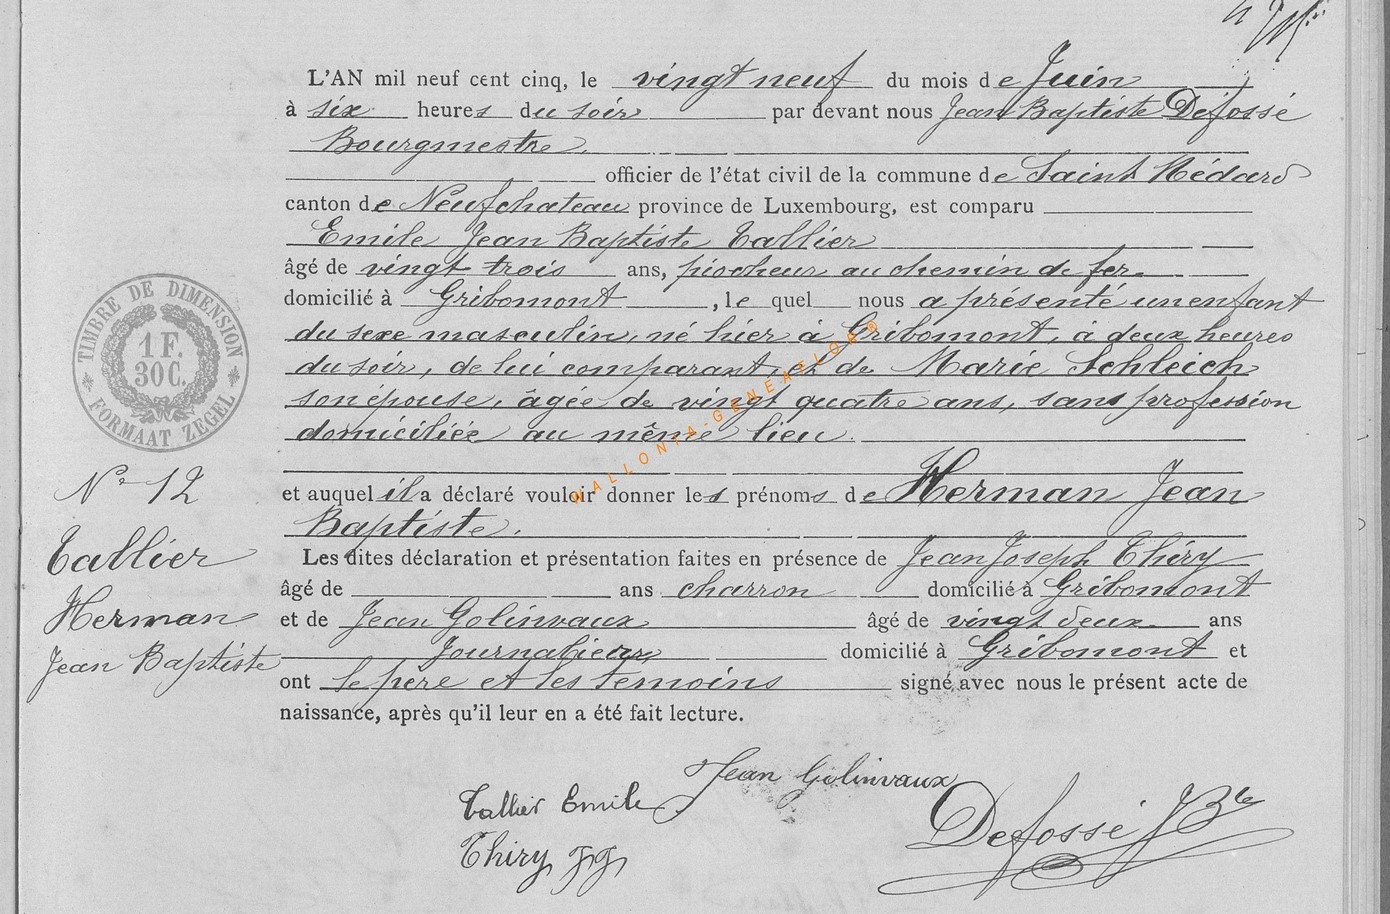 L'AN mil neuf cent cinq, le vingt neuf du mois de Juin
à six heures du soir par devant nous Jean Baptiste Defossé
Bourgmestre.
officier de l'état civil de la commune de Saint Médard
canton de Neufchateau province de Luxembourg, est comparu
Emile Jean Baptiste Tallier
âgé de vingt trois ans, piocheur au chemin de fer
domicilié à Gribomont, le quel nous a présenté un enfant
du sexe masculin, né hier à Gribomont, à deux heures
du soir, de lui comparant, et de Marie Schleich
son épouse, âgée de vingt quatre ans, sans profession
domiciliée au même lieu.
WALLONIA-GENEATLOAD
TIMBRE DE DIMENSION
1 F.
30 C.
FORMAAT ZEGEL
et auquel il a déclaré vouloir donner les prénoms de Herman Jean
Baptiste.
Nº 12
Tallier
Herman
Jean Baptiste
Les dites déclaration et présentation faites en présence de Jean Joseph Thiry
âgé de ans charron domicilié à Gribomont
et de Jean Golinvaux âgé de vingt deux ans
Journalier domicilié à Gribomont et
ont le père et les témoins signé avec nous le présent acte de
naissance, après qu'il leur en a été fait lecture.
Jean Golinvaux
Tallier Emile
Defossé J Bte
Thiry JJ